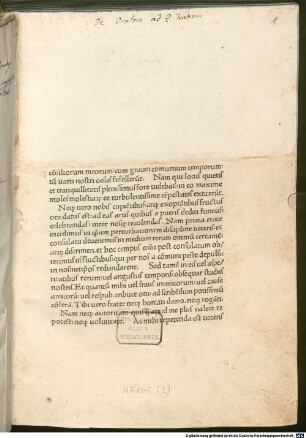 De Oratore ad Q. fratrem
1
cōsiliorum meorum: cum graues cōmunium temporum:
tū uarii nostri casus fefellerūt. Nam qui locus quietis
et tranquillitatis plenissimus fore uidebat̄: in eo maxime
moles molestiaꝝ et turbulentissime tēpestates extiterūt.
Neqꝫ uero nobis cupiētibus: atqꝫ exoptātibus fructus
otii datus est: ad eas artis quibus a pueris dediti fuimus
celebrandas: inter nosqꝫ recolendas. Nam prima etate
incidimus in ipsam perturbationem discipline ueteris: et
consulatu deuenimus in medium rerum omniū certamē
atqꝫ discrimen: et hoc tempus omne post consulatum ob
iecimus iis fluctibus: qui per nos a cōmuni peste depulsi
in nosmetip̄os redundarent. Sed tamē in his uel aspe
ritatibus rerum: uel angustiis temporis obsequar studiis
nostris. Et quantū mihi uel fraus inimicorum: uel cause
amicorū: uel respub. tribuet otii: ad scribēdum potissimū
cōferā. Tibi uero frater neqꝫ hortāti deero: neqꝫ rogāti.
Nam neqꝫ autoritate quisquā apud me plus ualere te
potest: neqꝫ uoluntate. Ac mihi repetenda est ueteris